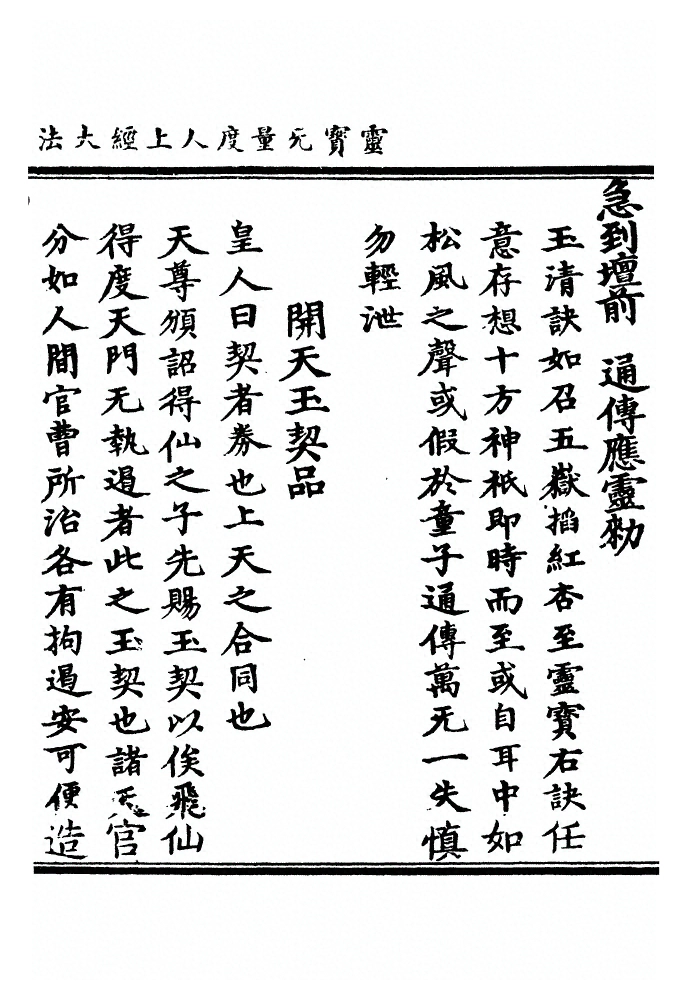 靈寳无量度人上經大法
急到壇前　通傳應靈勑
玉清訣如召五嶽搯紅杏至靈寳右訣任
意存想十方神祇即時而至或自耳中如
松風之聲或假於童子通傳萬无一失慎
勿輕泄
開天玉契品
皇人曰契者券也上天之合同也
天尊頒詔得仙之子先賜玉契以俟飛仙
得度天門无執遏者此之玉契也諸天官
分如人間官曹所治各有拘遏安可便造